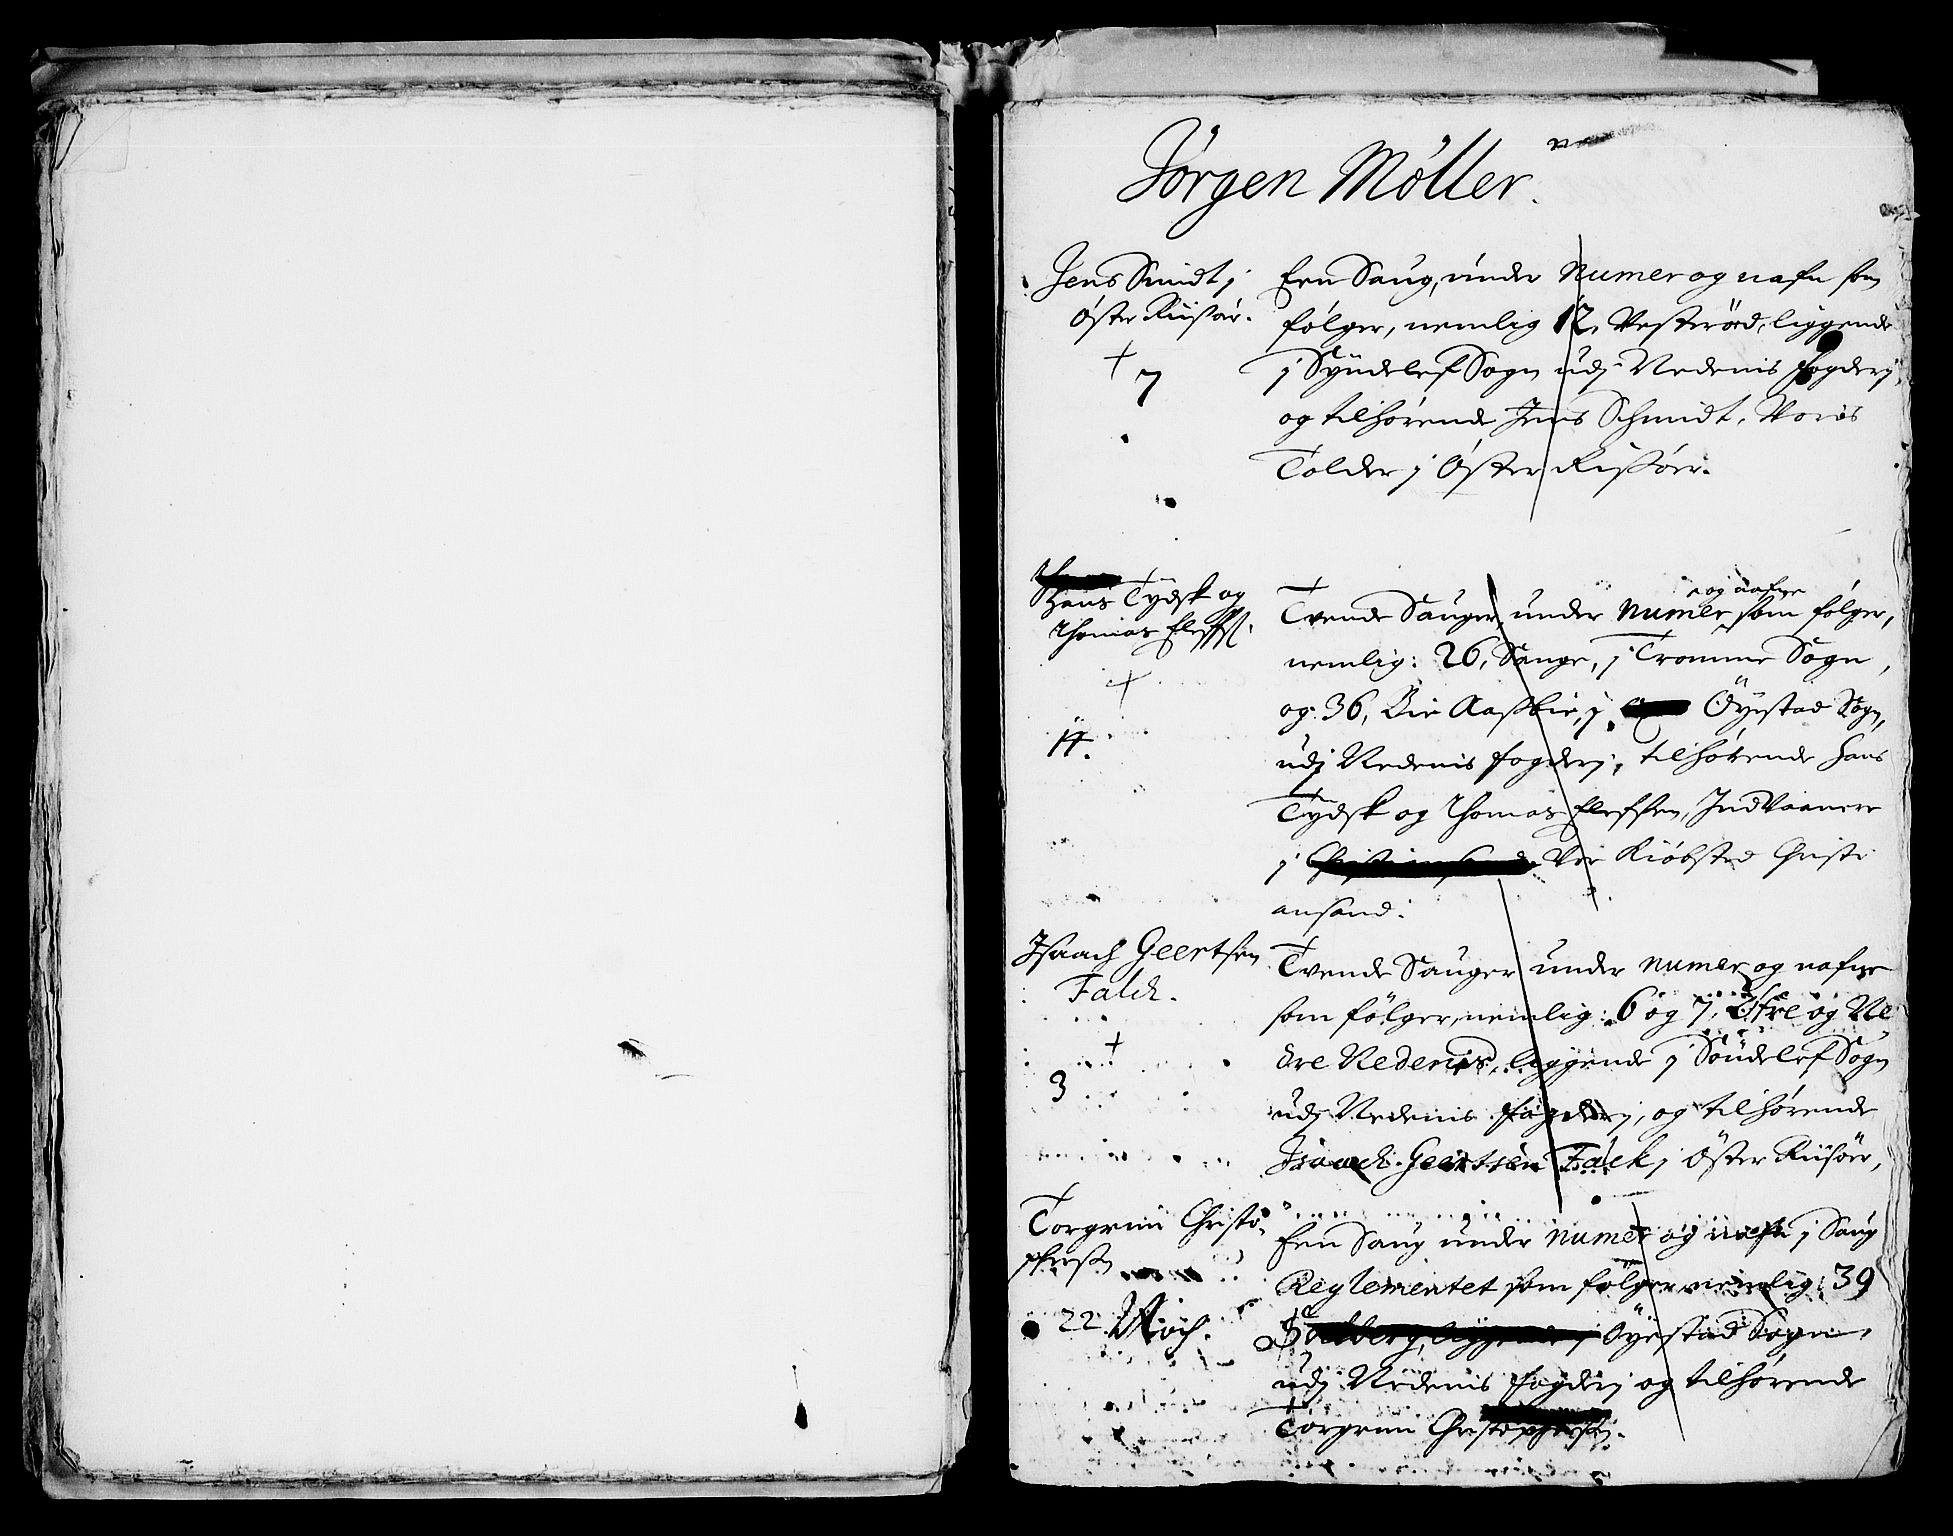 Jörgen Möller.
Jens Smidt j
Öster Riisöer.
+
7
Een Saug, under Numer og nafn som
følger, nemlig 12, Vesterød, liggende
j Syndelef Sogn udj Nedenis fogderj,
og tilhørende Jens Schmidt, Voris
Tolder j Öster Rissöer.
Hans Tydsk og
Thomas Eleffs.
+
Tvende Sauger, under Numer og nafne som følger,
nemlig: 26, Sange, j Tromme Sogn,
og 36, Bie Aassbie, j Öyestad Sogn,
udj Nedenis fogderj, tilhørende Hans
Tydsk og Thomas Eleffsen, Indvaanere
j Vor Kiøbsted Christi
ansand.
Isaach Geertsen
Falch.
+
3
Tvende Sauger under numer og nafne
som følger, nemlig: 6 og 7, Öfre og Ne
dre Nedenis, liggende j Söndelef Sogn
udj Nedenis fogderj, og tilhørende
Isaach Geertsen Falck j Öster Riisöer,
Torgrim Christo
phersen
22 Noch.
Een Saug under numer og nafn j Saug
Reglementet som følger nemlig: 39
Solberg, liggende j Öyestad Sogn,
udj Nedenis fogderj og tilhørende
Torgrim Christophersen.